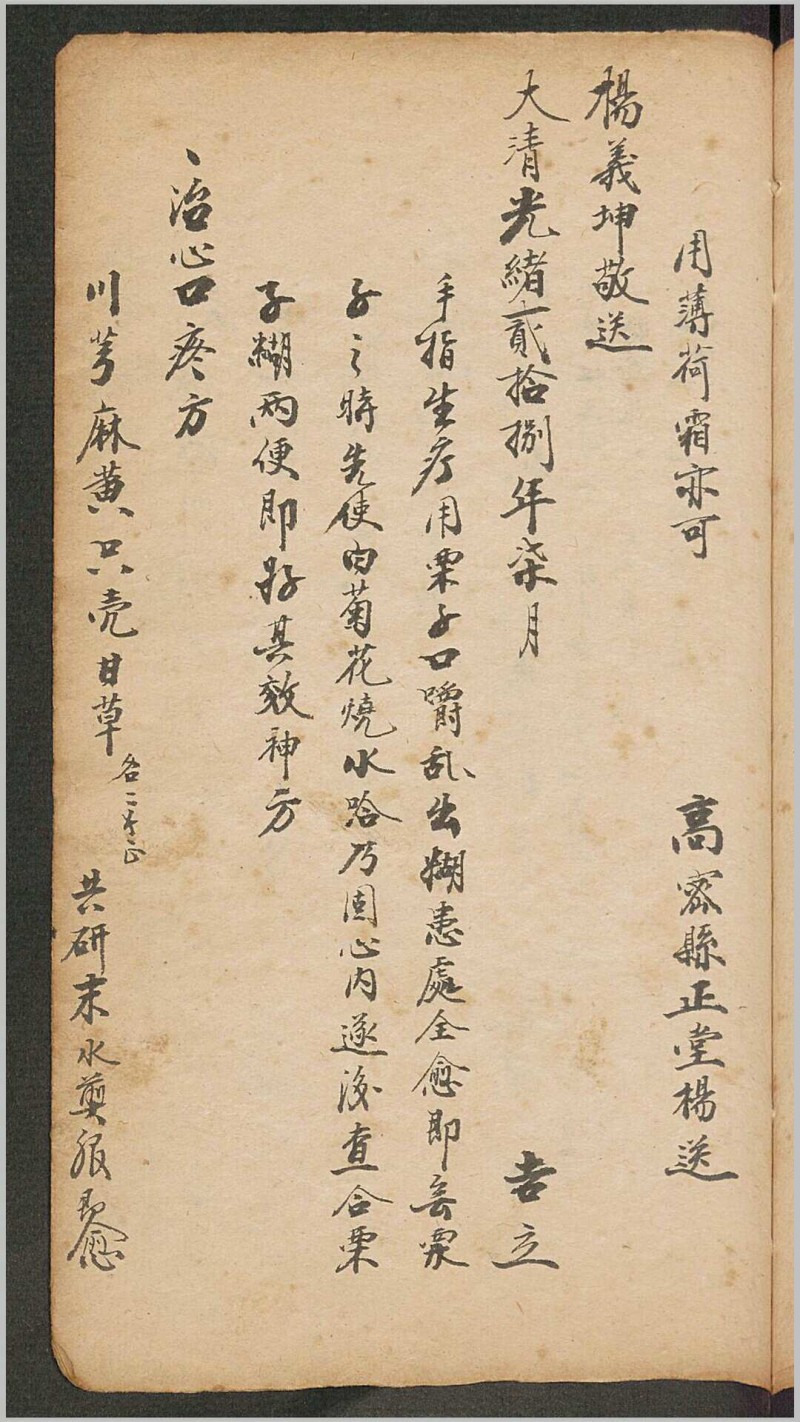 用薄荷霜亦可 高密縣正堂楊送
楊義坤敬送
大清光緒貳拾捌年柒月 吉立
手指生疔用栗子口嚼乱出糊患處全愈即無栗
子之時先使白菊花燒水哈乃固心内遂後查合栗
子糊两便即好其效神方
、治心口疼方
川芎麻黄只壳甘草各二 共研末水煎服即愈